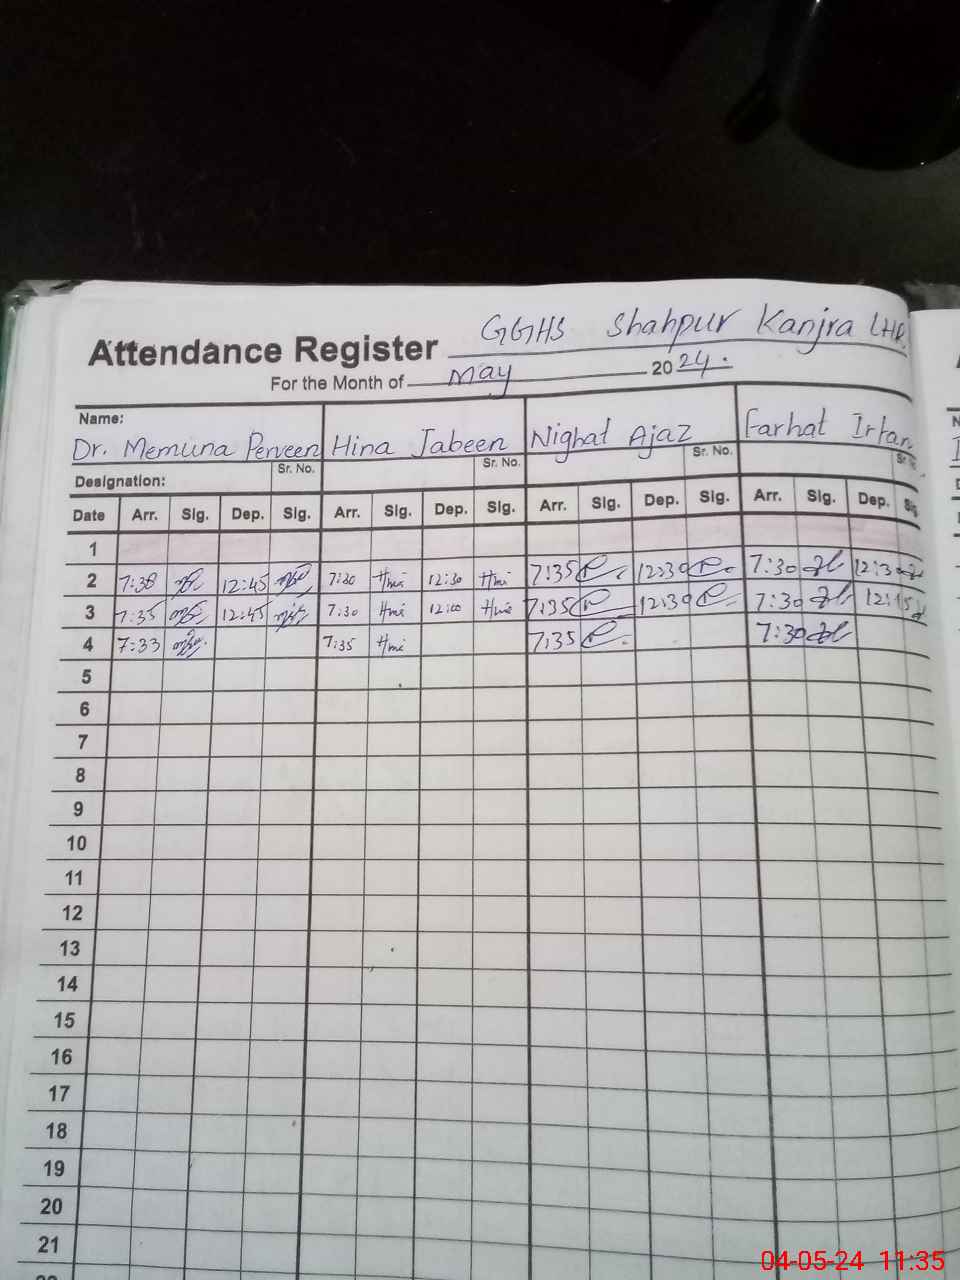 Attendance Register GGHS Shahpur Kanjra LHR
For the Month of May 2024.
Name:
Dr. Memuna Perveen Hina Jabeen Nighat Ajaz Farhat Irfan
Sr. No. Sr. No. Sr. No. Sr. No.
Designation:
Date Arr. Sig. Dep. Sig. Arr. Sig. Dep. Sig. Arr. Sig. Dep. Sig. Arr. Sig. Dep. Sig.
1
2 7:38 12:45 7:30 Hmi 12:30 Hmi 7:35 12:30 7:30 12:30
3 7:35 12:45 7:30 Hmi Hmi 7:35 12:30 7:30
4 7:33 7:35 Hmi 7:35 7:30
5
6
7
8
9
10
11
12
13
14
15
16
17
18
19
20
21
04-05-24 11:35